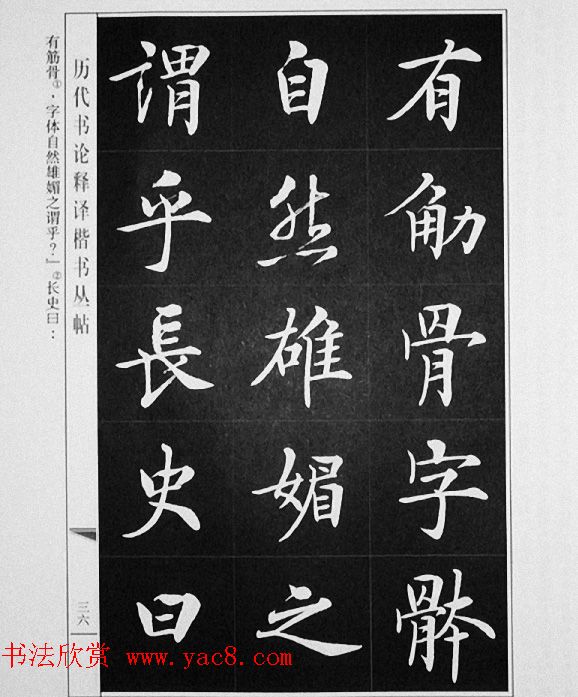 有觔骨字骵
自然雄媚之
謂乎長史曰
历代书论释译楷书丛帖
三六
有筋骨①，字体自然雄媚之谓乎？」②长史曰：
书法欣赏 www.yac8.com